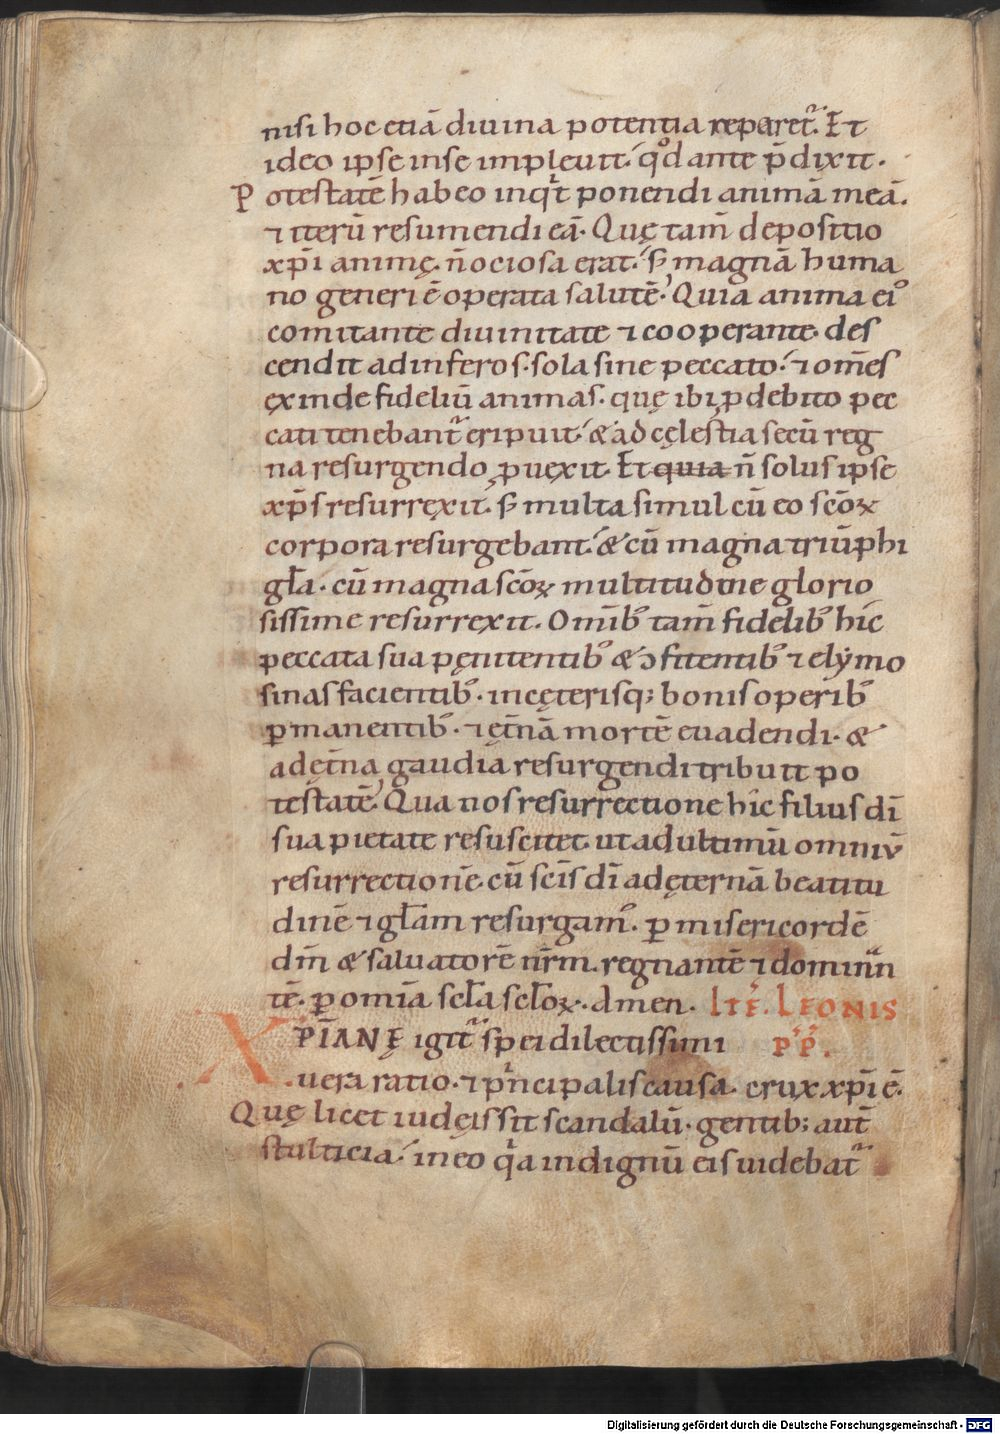 nisi hoc etiā diuina potentia reparet᷑. Et
ideo ipse inse impleuit. qd̊ ante p̄dixit.
Potestatē habeo inqͥt ponendi animā meā.
⁊ iterū resumendi eā. Quę tam̄ depositio
xp̄i animę. n̄ ociosa erat. s; magnā huma
no generi ē operata salutē. Quia anima ei᷒
comitante diuinitate ⁊ cooperante. des
cendit ad inferos. sola sine peccato. ⁊ om̄es
exinde fideliū animas. quę ibi ꝓ debito pec
cati tenebant᷑ eripuit. & ad cęlestia secū reg
na resurgendo ꝓuexit. Et quia n̄ solus ipse
xp̄s resurrexit. s; multa simul cū eo sc̄oꝝ
corpora resurgebant. & cū magna triūphi
gl̄a. cū magna sc̄oꝝ multitudine glorio
sissime resurrexit. Omīb᷒ tam̄ fidelib᷒ hic
peccata sua pęnitentib᷒ & ↄfitentib᷒ ⁊ elẏmo
sinas facientib᷒. in cęterisq; bonis operib᷒
ꝑmanentib᷒. ⁊ ęt̄nā mortē euadendi. &
ad ęt̄na gaudia resurgendi tribuit po
testatē. Qua nos resurrectione hic filius dī
sua pietate resuscitet. ut ad ultimū omniū
resurrectionē. cū sc̄is dī ad ęternā beatitu
dinē ⁊ gl̄am resurgam᷒. ꝑ misericordē
dn̄m & saluatorē nr̄m. regnantē ⁊ dominan
tē. ꝑ omīa sc̄la sc̄loꝝ. Amen. ITĒ. LEONIS
XPĪANĘ igit᷑ spei dilectissimi PP.
uera ratio. ⁊ pͥncipalis causa. crux xp̄i ē.
Quę licet iudęis sit scandalū. gentib; aut̄
stulticia. in eo qͥa indignū eis uidebat᷑
Digitalisierung gefördert durch die Deutsche Forschungsgemeinschaft - DFG